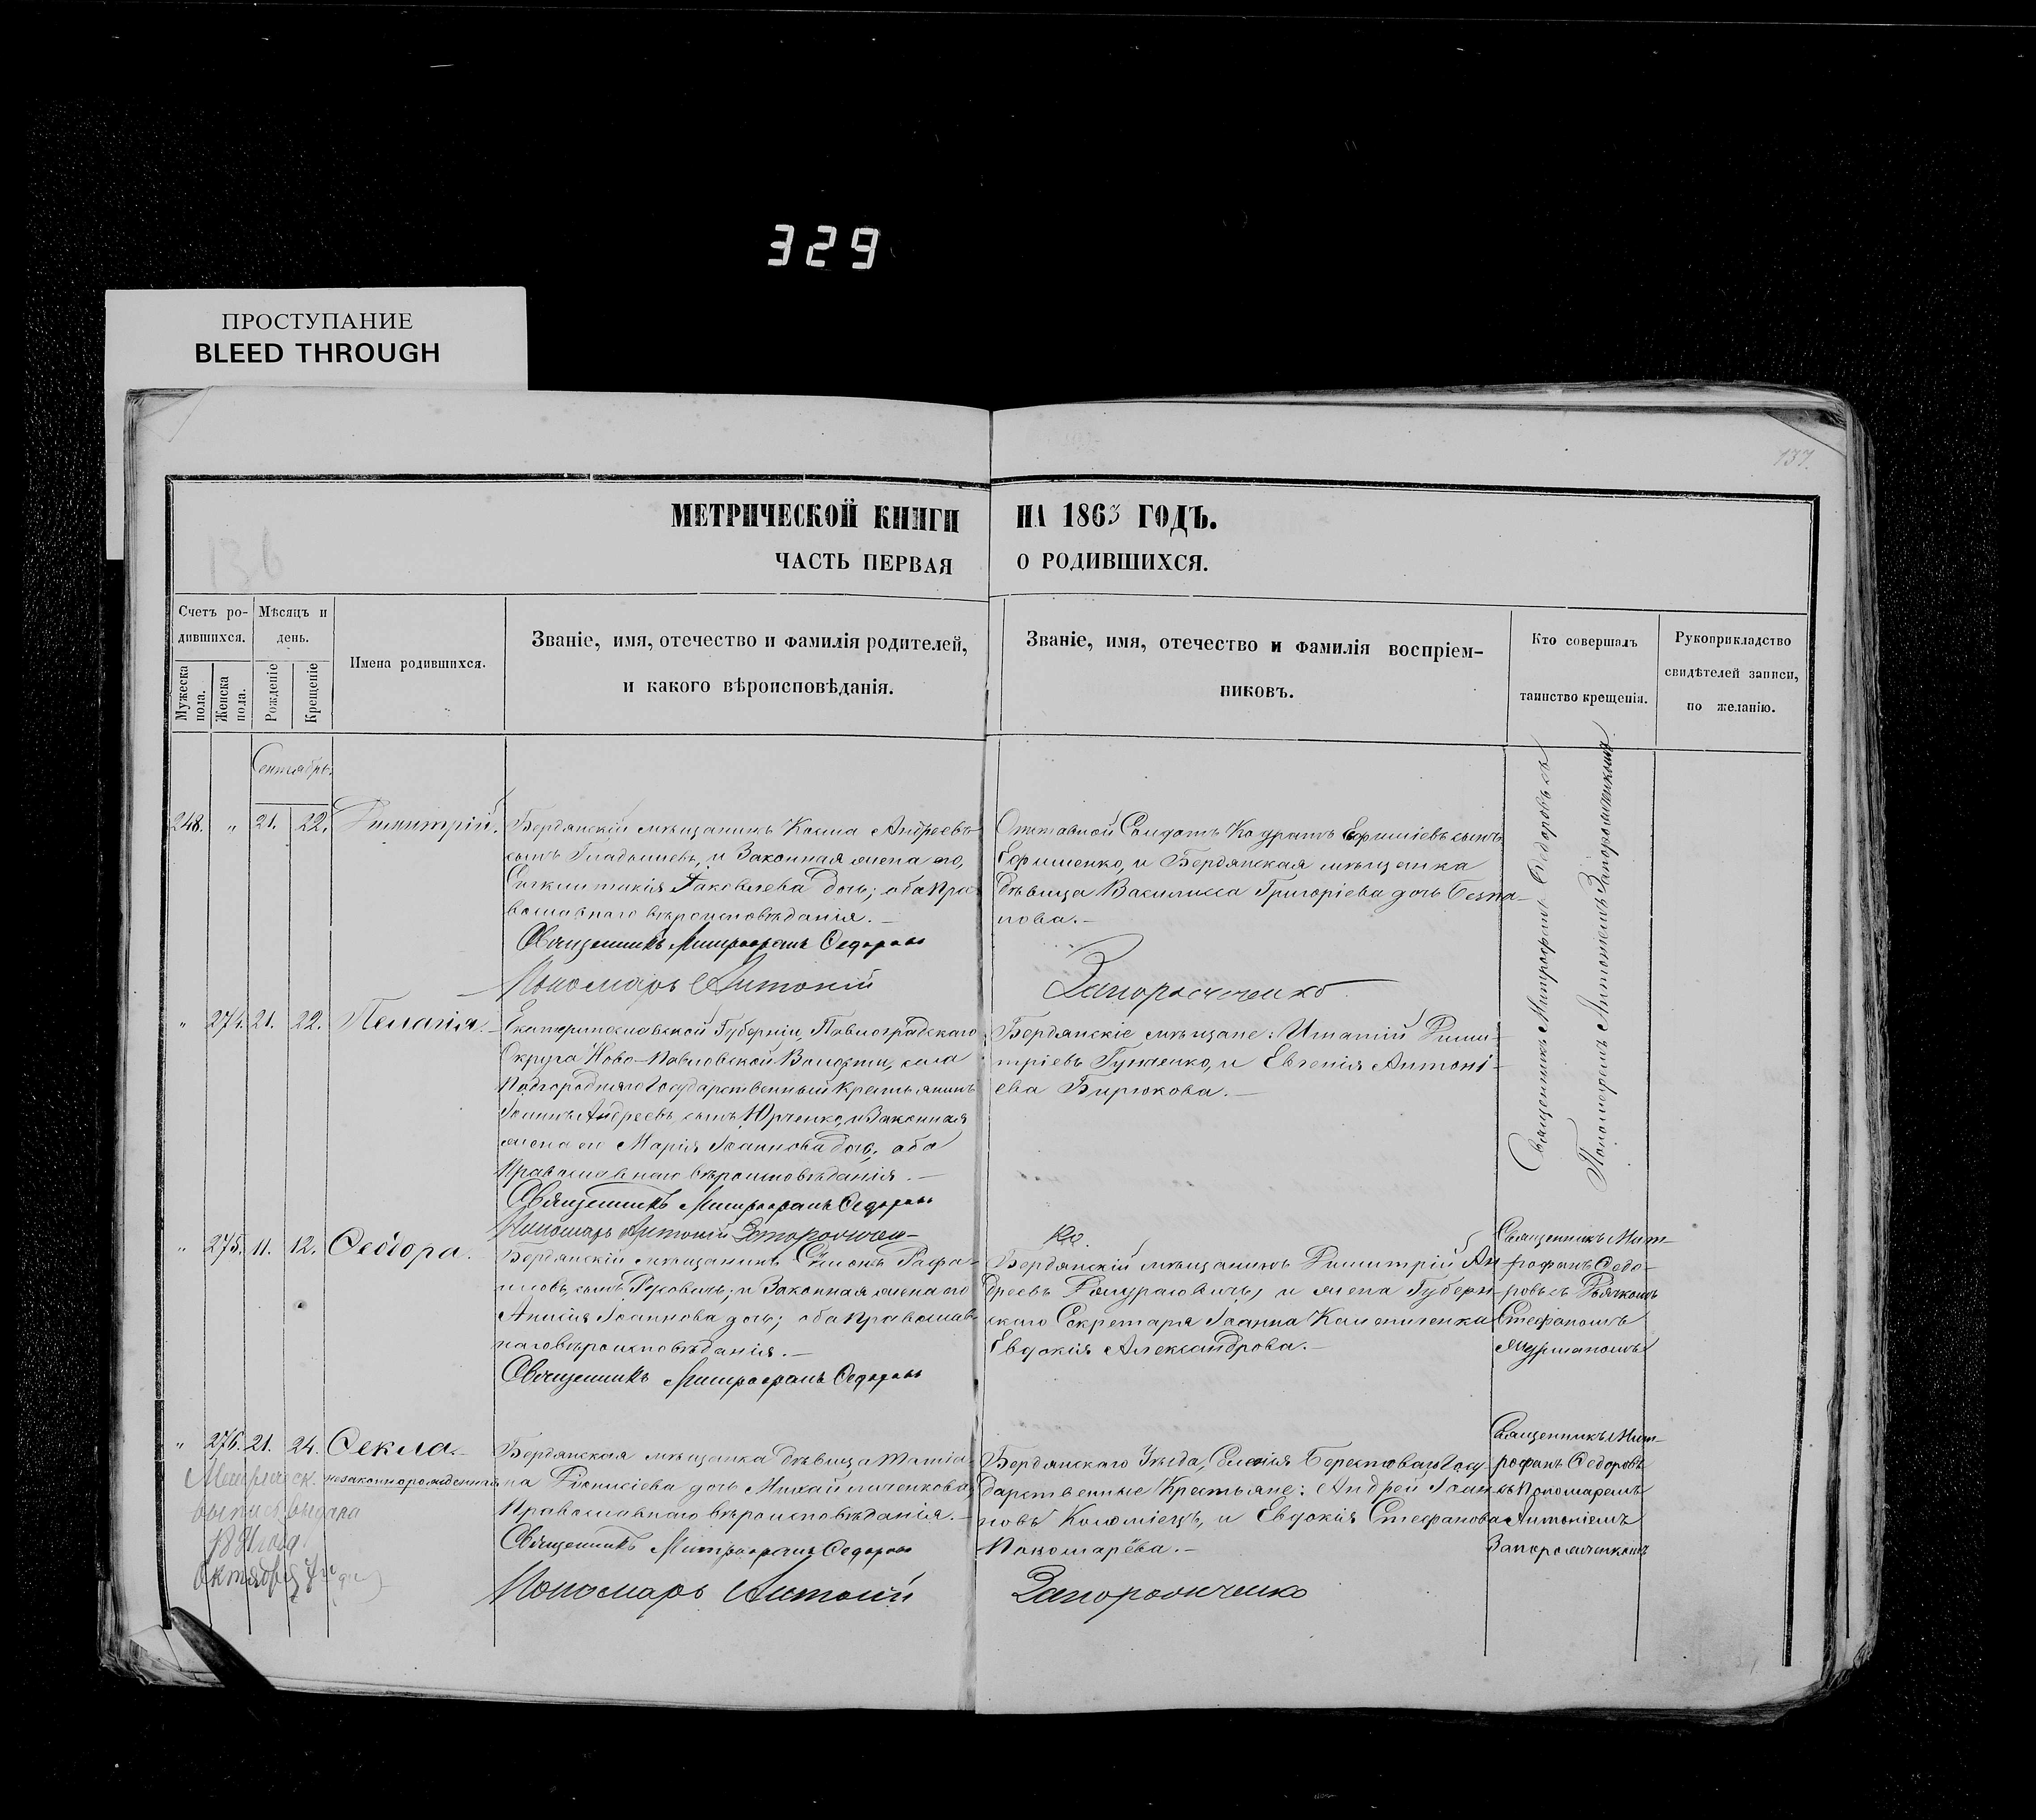 329
ПРОСТУПАНИЕ
BLEED THROUGH
137.
136
МЕТРИЧЕСКОЙ КНИГИ НА 1863 ГОДЪ.
ЧАСТЬ ПЕРВАЯ О РОДИВШИХСЯ.
Счетъ ро-
дившихся.
Мужеска пола.
Женска пола.
Мѣсяцъ и
день.
Рожденіе
Крещеніе
Имена родившихся.
Званіе, имя, отечество и фамилія родителей,
и какого вѣроисповѣданія.
Званіе, имя, отечество и фамилія воспріем-
никовъ.
Кто совершалъ
таинство крещенія.
Рукоприкладство
свидѣтелей записи,
по желанію.
Сентябрь.
248. " 21. 22. Димитрій.
Бердянскій мѣщанинъ Косма Андреевъ
сынъ Гладышевъ, и Законная жена его,
Іаковлева дочь; оба Пра-
вославнаго вѣроисповѣданія.—
Священникъ Митрофанъ Федоровъ
Пономарь Антоній Запорожченко
Отставной Солдатъ Кодратъ Ефимовъ сынъ
Ефименко, и Бердянская мѣщанка
дѣвица Василисса Григоріева дочь Безпа-
лова.—
Священникъ Митрофанъ Федоровъ съ
Пономаремъ Антоніемъ Запорожченкомъ
" 274. 21. 22. Пелагія.
Екатеринославской Губерніи, Павлоградскаго
Округа Ново-Павловской Волости, села
Подгороднаго Государственный крестьянинъ
Іоаннъ Андреевъ сынъ Юрченко, и Законная
жена его Марія Іоаннова дочь, оба
Православнаго вѣроисповѣданія.—
Священникъ Митрофанъ Федоровъ
Пономарь Антоній Запорожчен-
ко.
Бердянскіе мѣщане: Игнатій Дими-
тріевъ Гунченко, и Евгенія Антоні-
ева Бирюкова.—
" 275. 11. 12. Феодора.
Бердянскій мѣщанинъ Симонъ Рафа-
иловъ сынъ и Законная жена его
Анисія Іоаннова дочь; оба Православ-
наго вѣроисповѣданія.—
Священникъ Митрофанъ Федоровъ
Бердянскій мѣщанинъ Димитрій Ан-
дреевъ и жена Губерн-
скаго Секретаря Іоанна
Евдокія Александрова.—
Священникъ Мит-
рофанъ Федо-
ровъ съ Дьячкомъ
Стефаномъ
" 276. 21. 24. Фекла.
незаконнорожденная
Бердянская мѣщанка дѣвица Татіа-
на Діонисіева дочь Михайличенкова,
Православнаго вѣроисповѣданія.—
Священникъ Митрофанъ Федоровъ
Пономарь Антоній Запорожченко
Бердянскаго Уѣзда, Селенія Берестоваго Госу-
дарственные Крестьяне: Андрей Іоан-
новъ Коломіецъ, и Евдокія Стефанова
Пономарёва.—
Священникъ Мит-
рофанъ Федоровъ
съ Пономаремъ
Антоніемъ
Запорожченкомъ
Метрическ.
выпись выдана
Октября